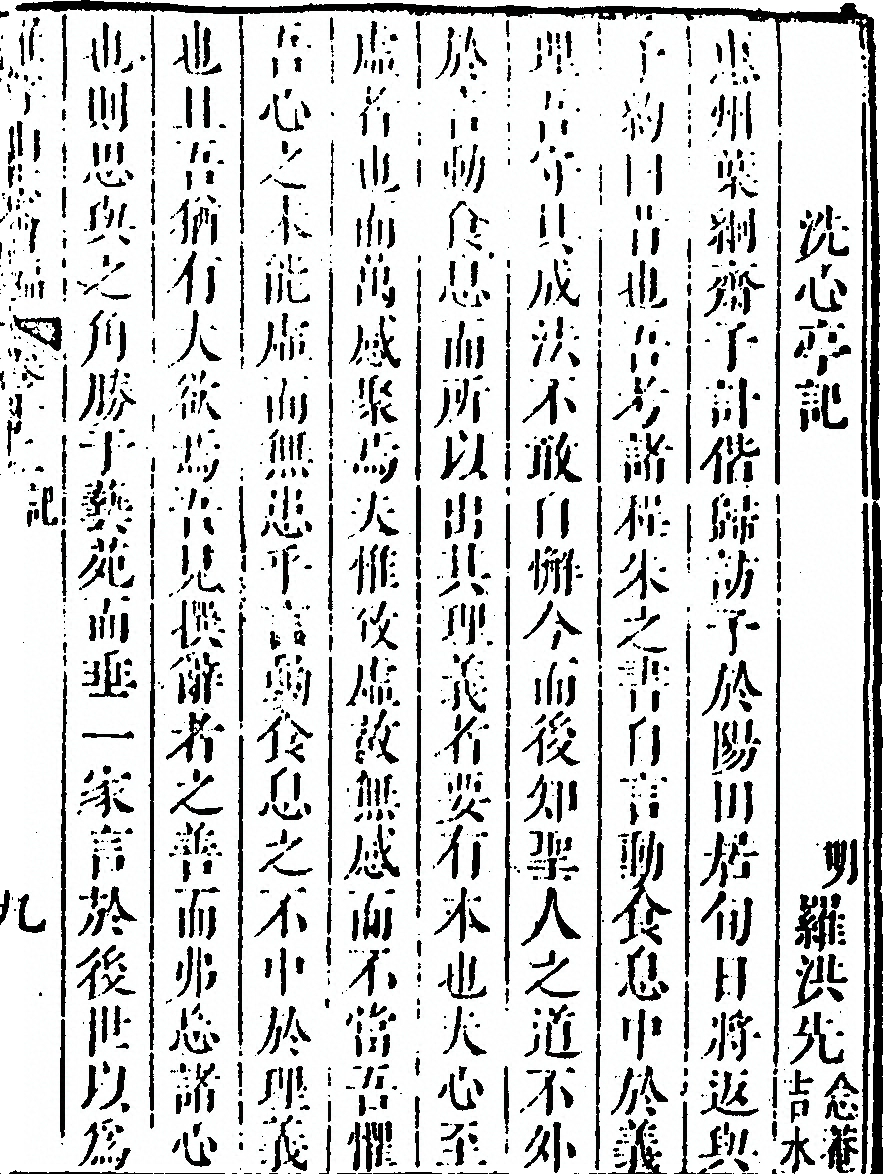 洗心亭記
明羅洪先念菴吉水
惠州葉絅齋子計偕歸訪予於陽田居旬日將返與
予約曰昔也吾考諸程朱之書自言動食息中於義
理吾守其成法不敢自懈今而後知聖人之道不外
於言動食息而所以出其理義者要有本也夫心至
虛者也而萬感聚焉夫惟攷虛故無感而不當吾懼
吾心之未能虛而無患乎言動食息之不中於理義
也且吾猶有大欲焉吾見撰辭者之善而弗忘諸心
也則思與之角勝于藝苑而垂一家言於後世以爲
記
九